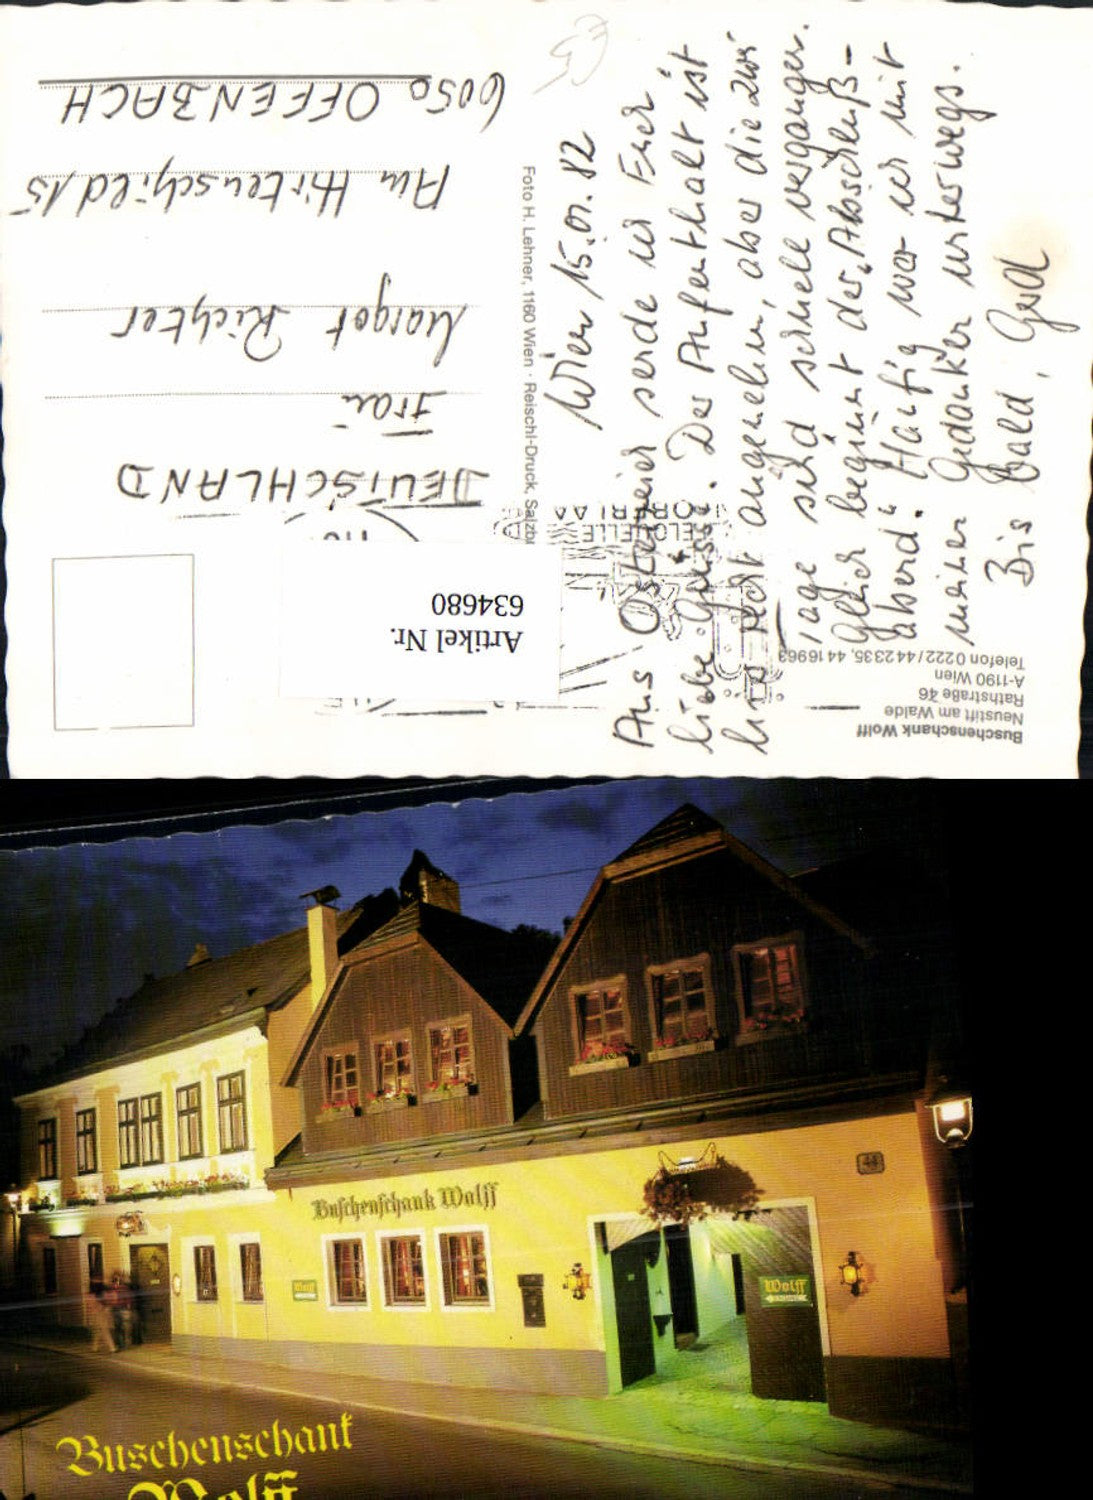 Wien 15.01.82
Aus Österreich sende ich Euch
liebe Grüsse. Der Aufenthalt ist
hier recht angenehm, aber die zwei
Tage sind schnell vergangen.
Gleich beginnt der „Abschluß-
abend“. Häufig war ich mit
meinen Gedanken unterwegs.
Bis bald, Gerd
DEUTSCHLAND
Frau
Margot Richter
Am Hirtenschild 15
6050 OFFENBACH
Foto H. Lehner, 1160 Wien · Reischl-Druck, Salzbu
Buschenschank Wolff
Neustift am Walde
Rathstraße 46
A-1190 Wien
Telefon 0222/442335, 4416963
Artikel Nr.
634680
Buschenschank Wolff
44
Wolff
Wolff
Buschenschank
Wolff